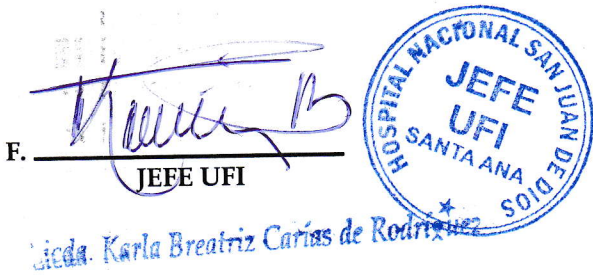 F.
JEFE UFI
HOSPITAL NACIONAL SAN JUAN DE DIOS
JEFE
UFI
SANTA ANA
Licda. Karla Breatriz Carías de Rodríguez